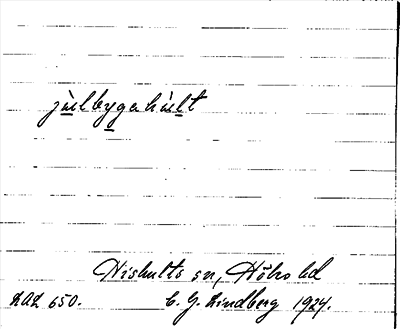 jùlbygehùlt
Hishults sn, Höks hd
LAL 650. C. G. Lindberg 1924.